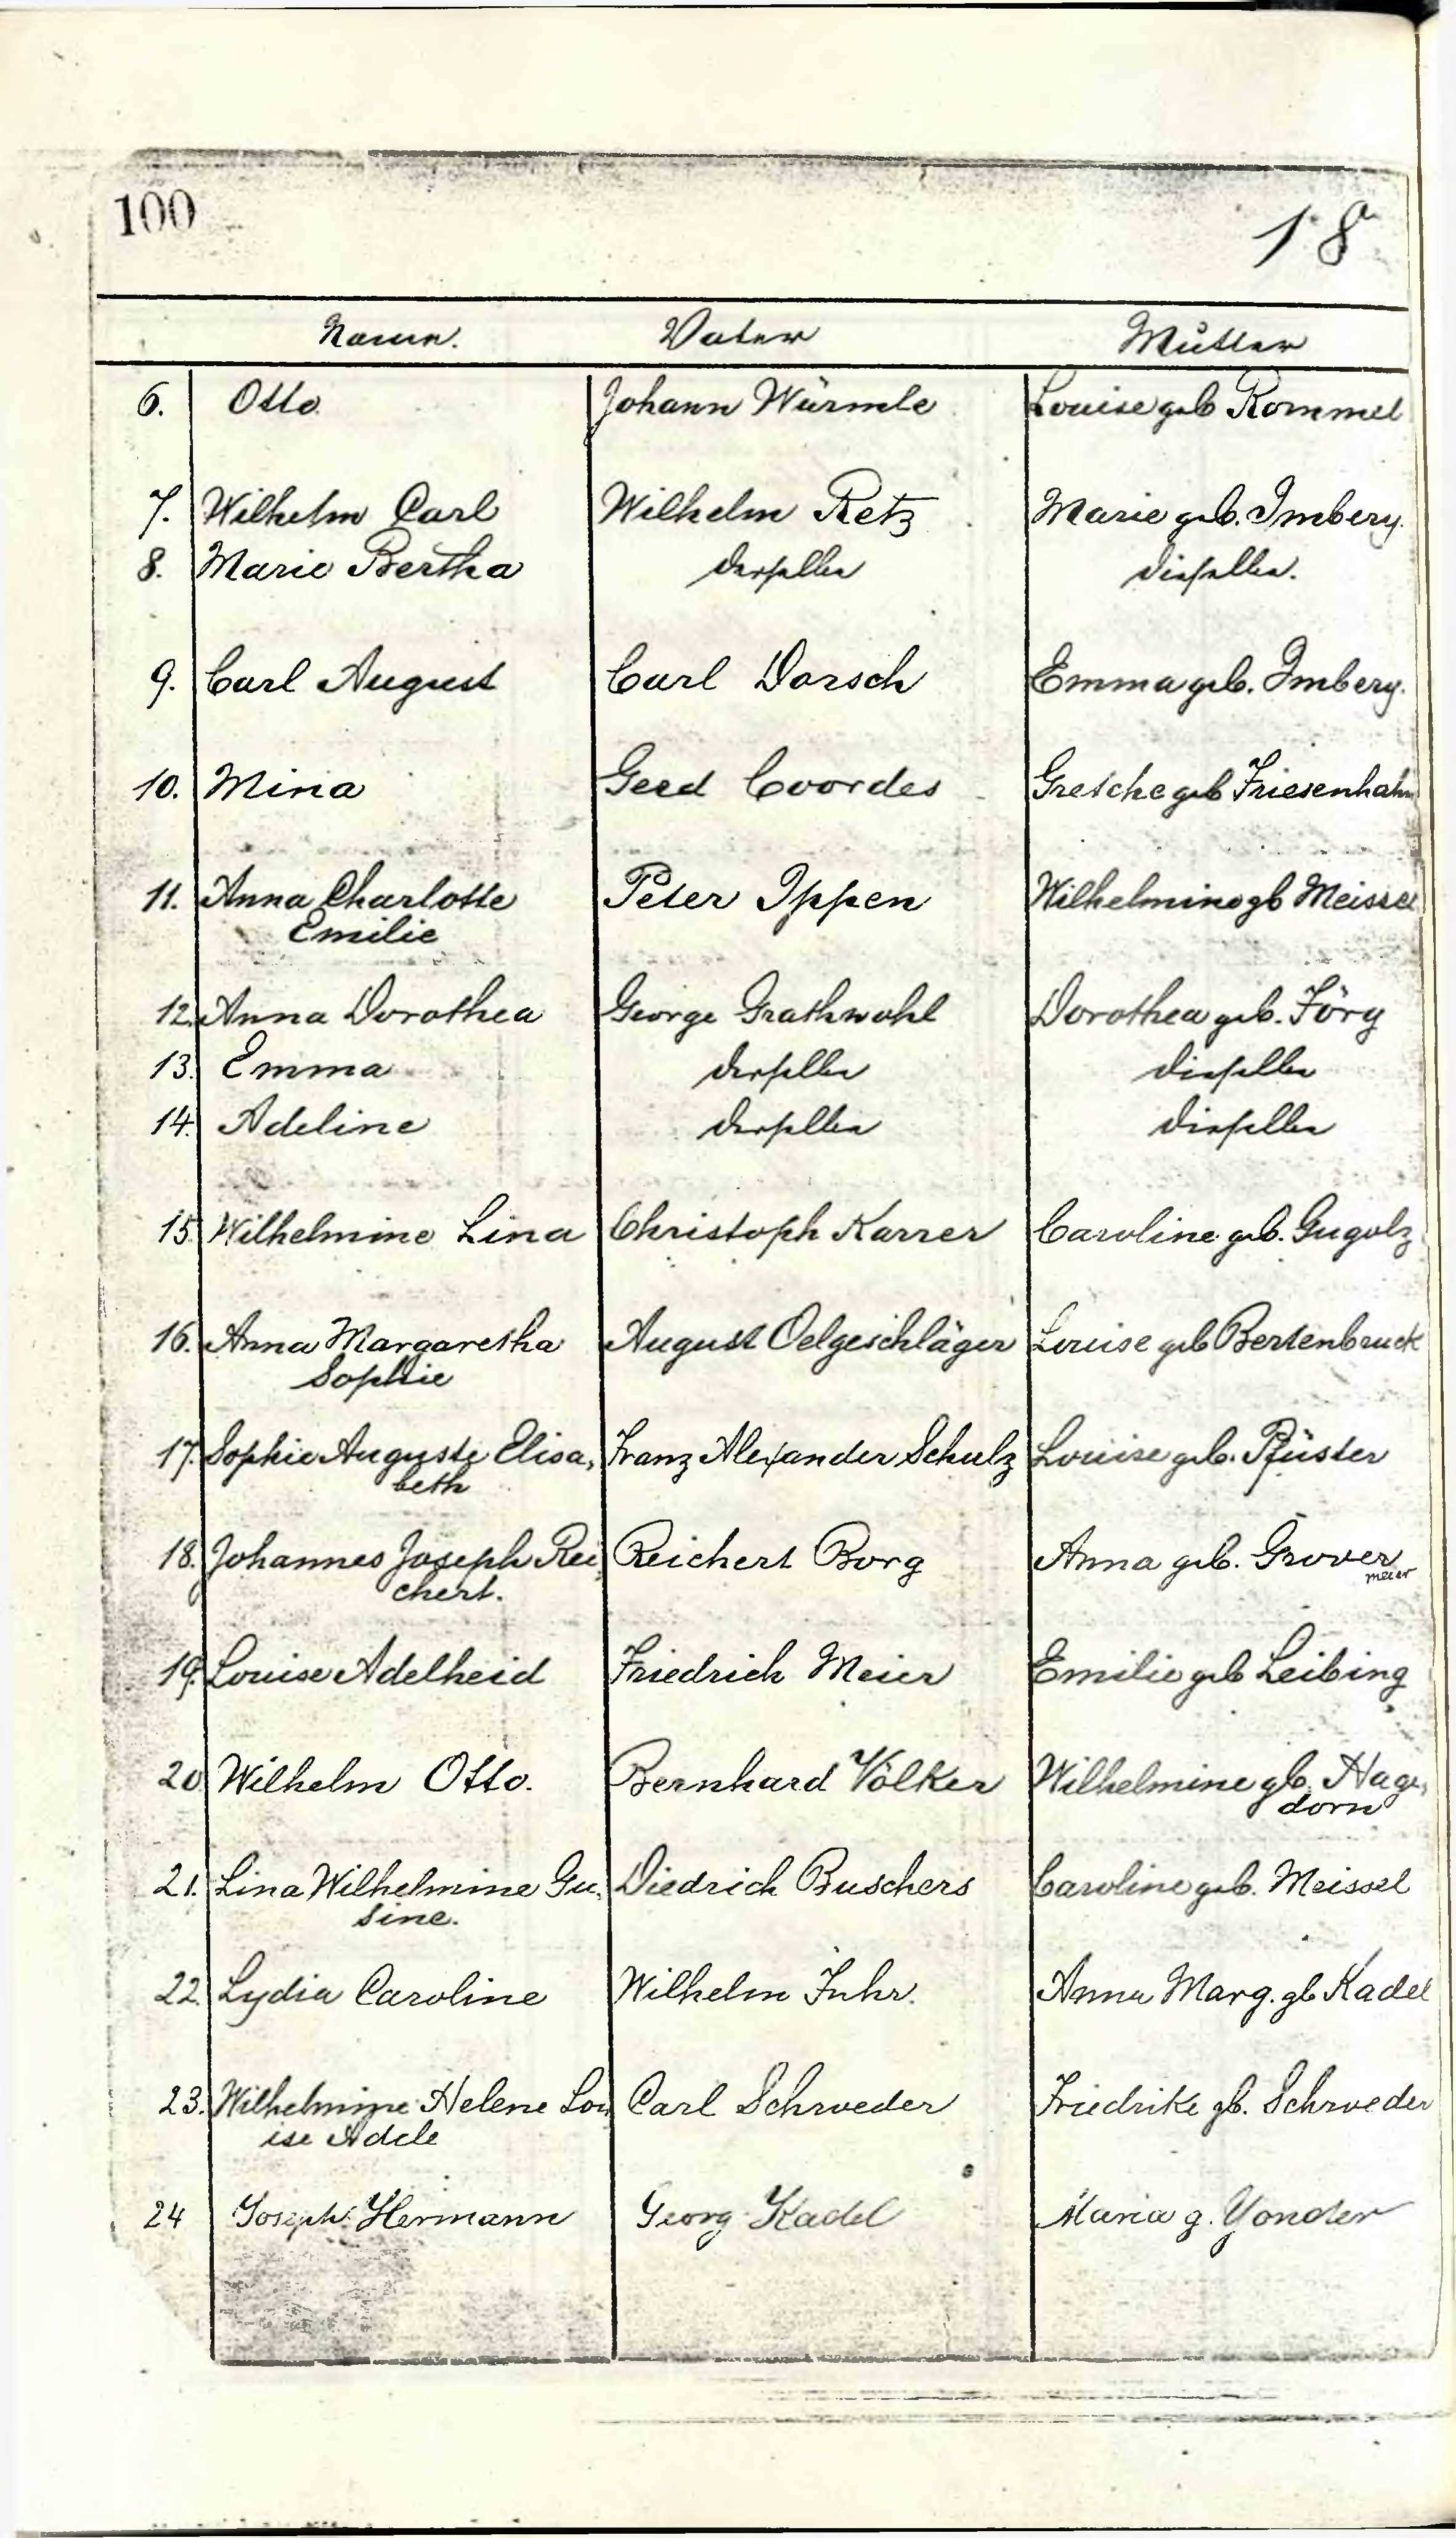 100
18
Name. Vater Mutter
6. Otto. Johann Würmle Louise geb Rommel
7. Wilhelm Carl Wilhelm Retz Marie geb. Imbery.
8. Marie Bertha derselbe dieselbe.
9. Carl August Carl Dorsch Emma geb. Imbery.
10. Mina Gerd Coordes Gretche geb Friesenhahn
11. Anna Charlotte Peter Ippen Wilhelmine gb Meissel
Emilie
12. Anna Dorothea George Grathwohl Dorothea geb. Jörg
13. Emma derselbe dieselbe
14. Adeline derselbe dieselbe
15. Wilhelmine Lina Christoph Karrer Caroline geb. Gugolz
16. Anna Margaretha August Oelgeschläger Louise geb Bertenbruck
Sophie
17. Sophie Auguste Elisa, Franz Alexander Schulz Louise geb. Pfüster
beth
18. Johannes Joseph Rei, Reichert Borg Anna geb. Grover
chert. meier
19. Louise Adelheid Friedrich Meier Emilie geb Leibing
20 Wilhelm Otto. Bernhard Völker Wilhelmine gb. Hage,
dorn
21. Lina Wilhelmine Gu, Diedrich Buschers Caroline geb. Meissel
sine.
22. Lydia Caroline Wilhelm Fuhr. Anna Marg. gb Kadel
23. Wilhelmine Helene Lou Carl Schroeder Friedrike gb. Schroeder
ise Adele
24 Joseph Hermann Georg Kadel Maria g. Yonder